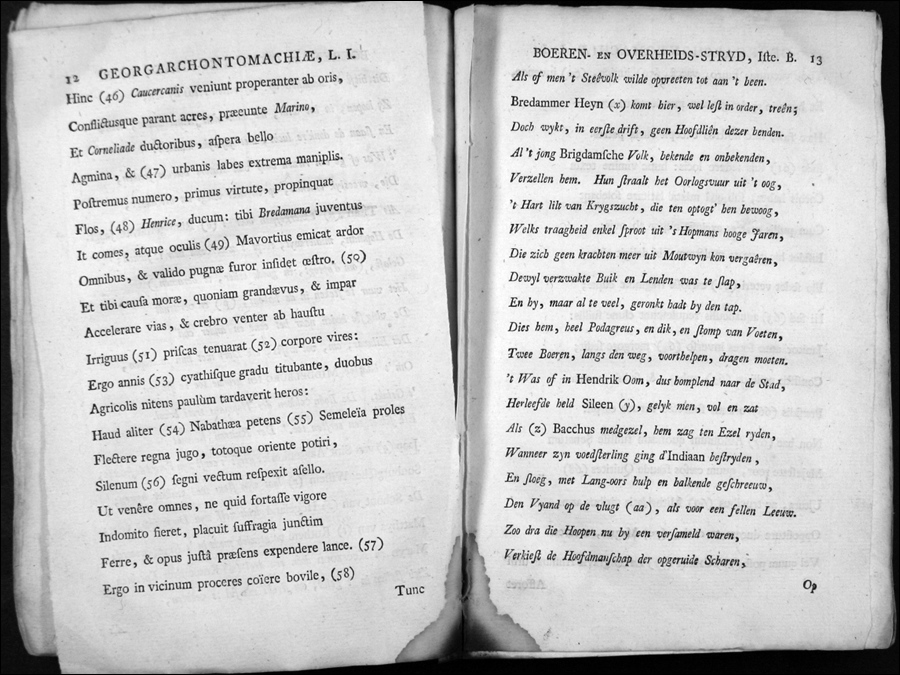 12 GEORGARCHONTOMACHIÆ, L. I.
Hinc (46) Caucercanis veniunt properanter ab oris,
Conflictusque parant acres, præeunte Marino,
Et Corneliade ductoribus, aſpera bello
Agmina, & (47) urbanis labes extrema maniplis.
Poſtremus numero, primus virtute, propinquat
Flos, (48) Henrice, ducum: tibi Bredamana juventus
It comes, atque oculis (49) Mavortius emicat ardor
Omnibus, & valido pugnæ furor inſidet œſtro. (50)
Et tibi cauſa moræ, quoniam grandævus, & impar
Accelerare vias, & crebro venter ab hauſtu
Irriguus (51) priſcas tenuarat (52) corpore vires:
Ergo annis (53) cyathiſque gradu titubante, duobus
Agricolis nitens paulùm tardaverit heros:
Haud aliter (54) Nabathæa petens (55) Semeleïa proles
Flectere regna jugo, totoque oriente potiri,
Silenum (56) ſegni vectum reſpexit aſello.
Ut venêre omnes, ne quid fortaſſe vigore
Indomito fieret, placuit ſuffragia junctim
Ferre, & opus juſtâ præſens expendere lance. (57)
Ergo in vicinum proceres coïere bovile, (58)
Tunc
BOEREN- EN OVERHEIDS-STRYD, Iſte. B. 13
Als of men 't Steêvolk wilde opvreeten tot aan 't been.
Bredammer Heyn (x) komt hier, wel leſt in order, treên;
Doch wykt, in eerſte drift, geen Hoofdliên dezer benden.
Al 't jong Brigdamſche Volk, bekende en onbekenden,
Verzellen hem. Hun ſtraalt het Oorlogsvuur uit 't oog,
't Hart lilt van Krygszucht, die ten optogt' hen bewoog,
Welks traagheid enkel ſproot uit 's Hopmans hooge Jaren,
Die zich geen krachten meer uit Moutwyn kon vergaêren,
Dewyl verzwakte Buik en Lenden was te ſlap,
En hy, maar al te veel, geronkt hadt by den tap.
Dies hem, heel Podagreus, en dik, en ſtomp van Voeten,
Twee Boeren, langs den weg, voorthelpen, dragen moeten.
't Was of in Hendrik Oom, dus homplend naar de Stad,
Herleefde held Sileen (y), gelyk men, vol en zat
Als (z) Bacchus medgezel, hem zag ten Ezel ryden,
Wanneer zyn voedſterling ging d'Indiaan beſtryden,
En ſloeg, met Lang-oors hulp en balkende geſchreeuw,
Den Vyand op de vlugt (aa), als voor een fellen Leeuw.
Zoo dra die Hoopen nu by een verſameld waren,
Verkieſt de Hoofdmanſchap der opgeruide Scharen,
Op